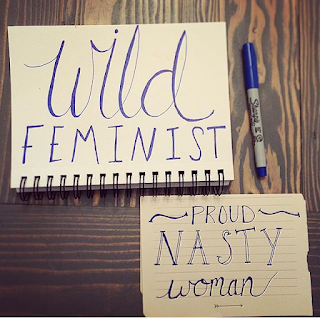 Wild
FEMINIST
Sharpie
PROUD
NASTY
woman